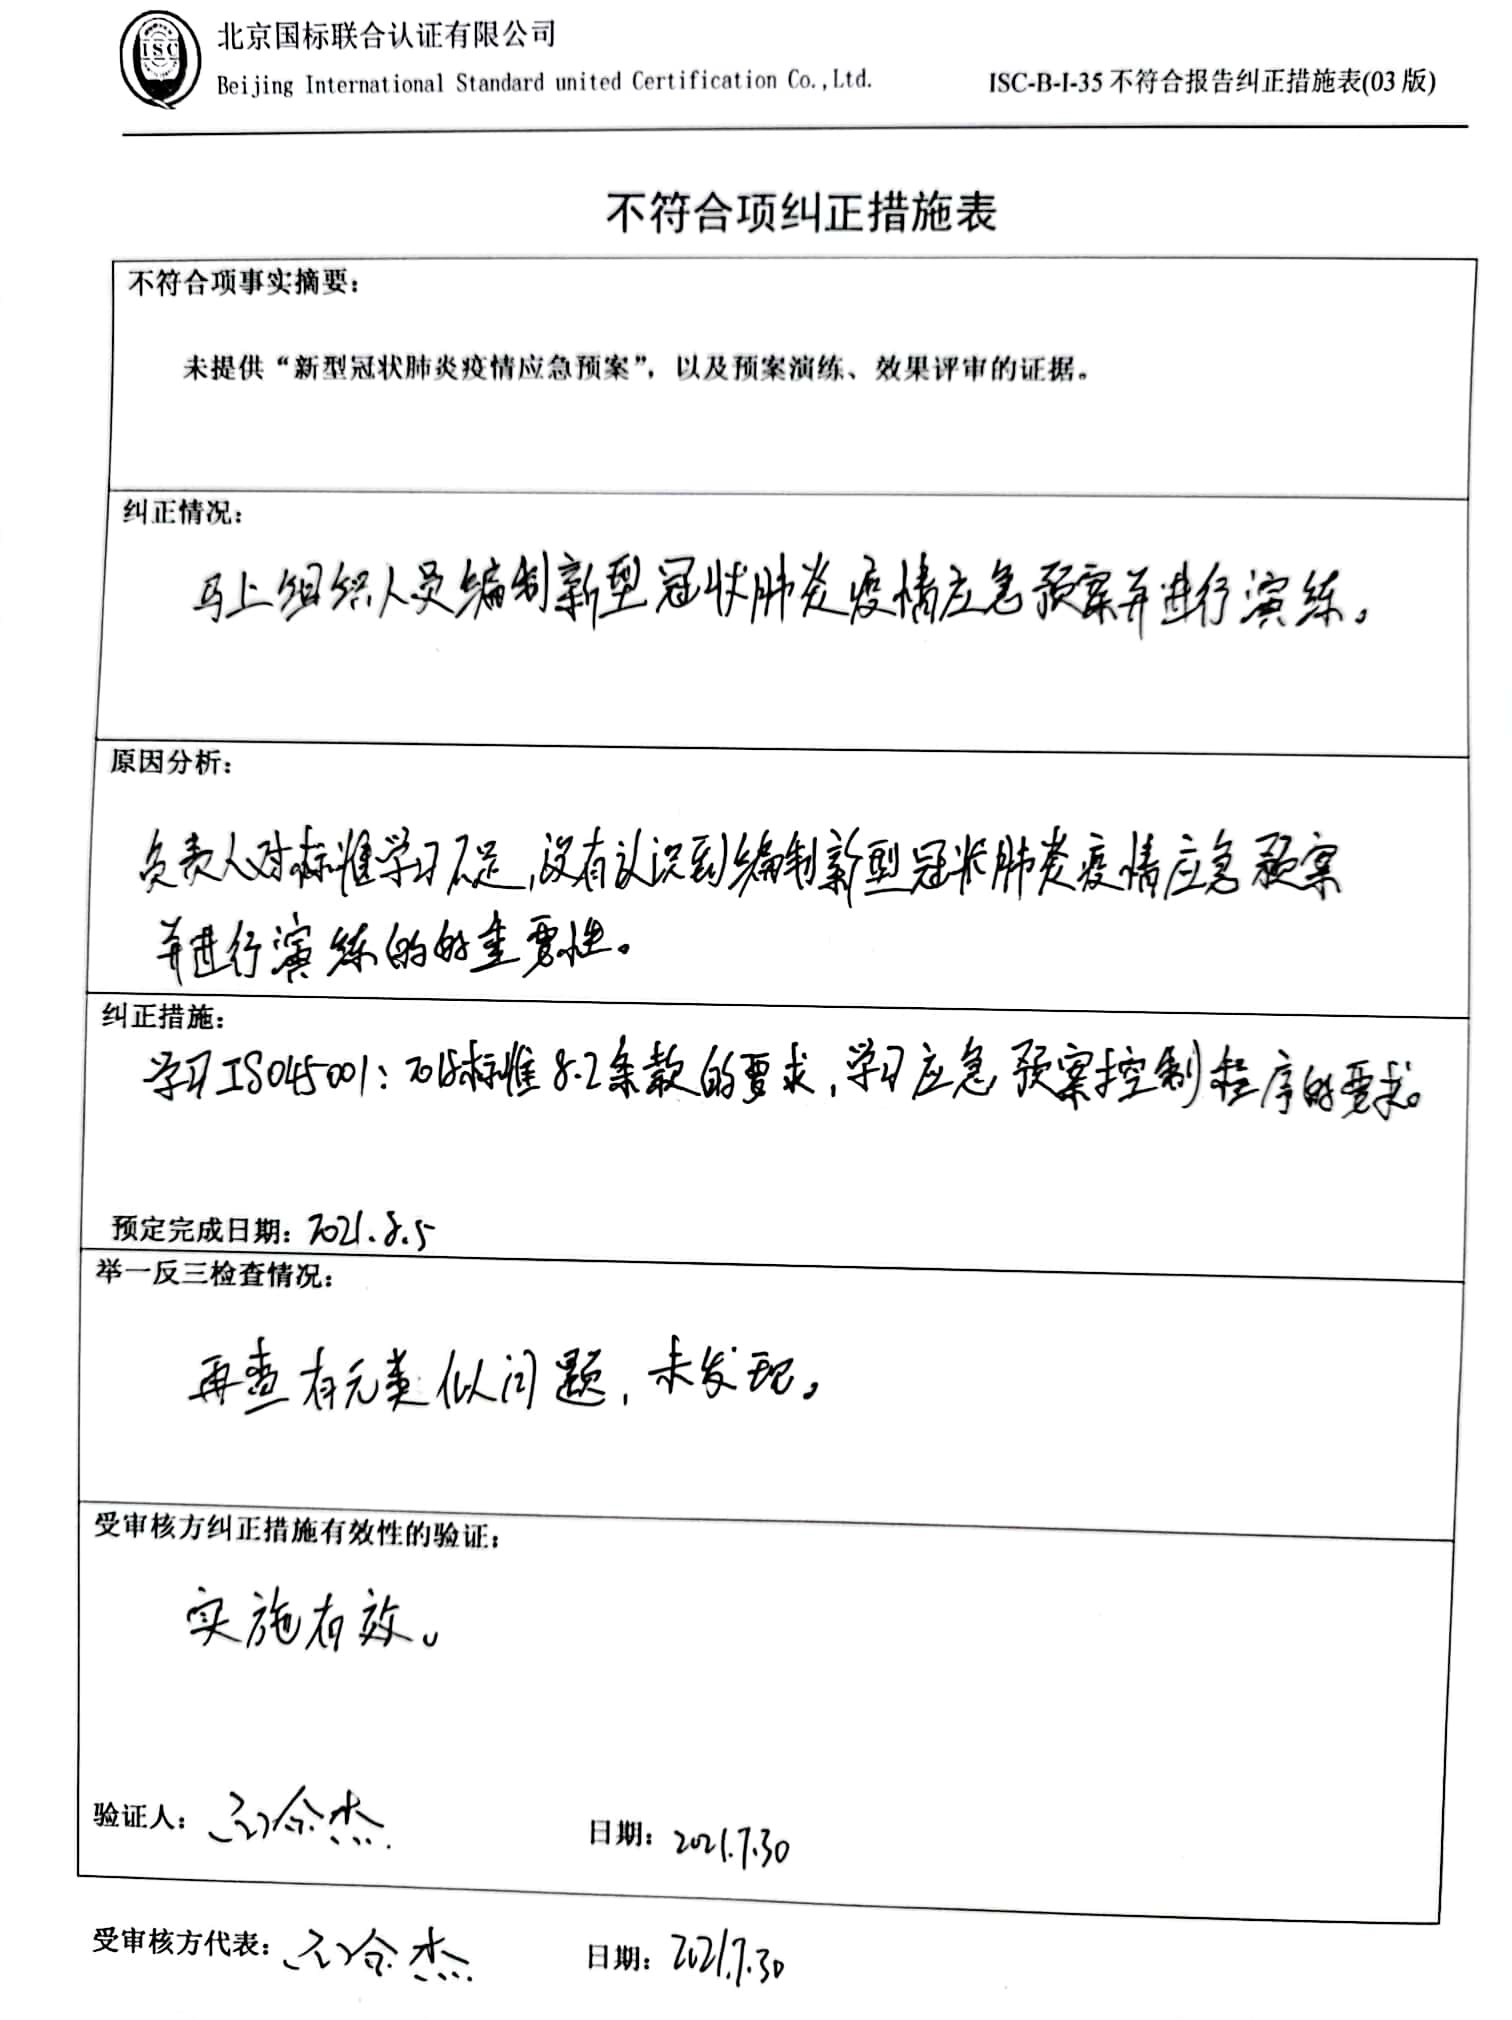 ISC
北京国标联合认证有限公司
Beijing International Standard united Certification Co.,Ltd.
ISC-B-I-35 不符合报告纠正措施表(03 版)
不符合项纠正措施表
不符合项事实摘要：
未提供“新型冠状肺炎疫情应急预案”，以及预案演练、效果评审的证据。
纠正情况：
马上组织人员编制新型冠状肺炎疫情应急预案并进行演练。
原因分析：
负责人对标准学习不足,没有认识到编制新型冠状肺炎疫情应急预案
并进行演练的的重要性。
纠正措施：
学习ISO45001：2018标准8.2条款的要求,学习应急预案控制程序的要求。
预定完成日期：2021.8.5
举一反三检查情况：
再查有无类似问题，未发现。
受审核方纠正措施有效性的验证：
实施有效。
验证人：
日期：2021.7.30
受审核方代表：
日期：2021.7.30